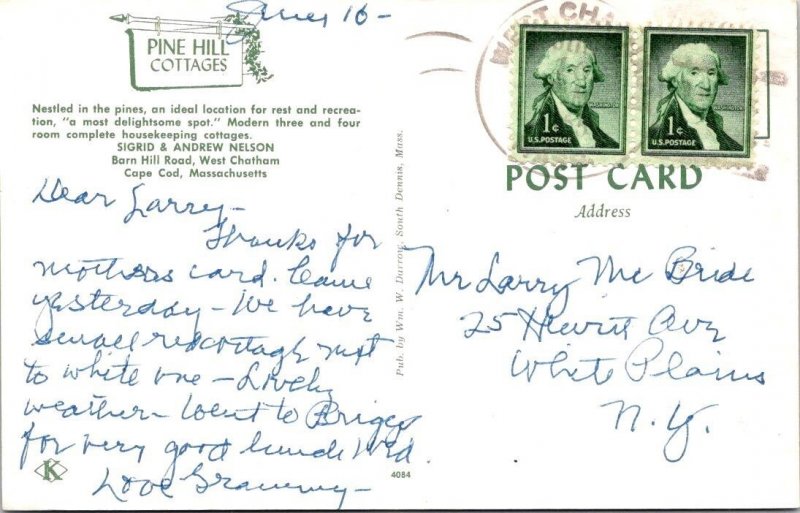 June 16-
PINE HILL
COTTAGES
Nestled in the pines, an ideal location for rest and recrea-
tion, "a most delightsome spot." Modern three and four
room complete housekeeping cottages.
SIGRID & ANDREW NELSON
Barn Hill Road, West Chatham
Cape Cod, Massachusetts
Dear Larry-
Thanks for
mothers card. Came
yesterday - We have
small red cottage next
to white one - Lovely
weather - Went to Briggs
for very good lunch Wed.
Love Grammy -
K
4084
Pub. by Wm. W. Durrow, South Dennis, Mass.
WEST CHA
WASHINGTON
1¢
U.S. POSTAGE
WASHINGTON
1¢
U.S. POSTAGE
POST CARD
Address
Mr Larry Mc Bride
25 Hewitt Ave
White Plains
N.Y.